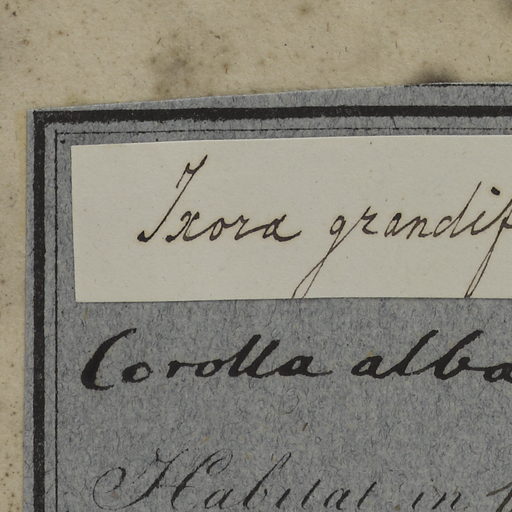 Ixora grandif
Corolla alba
Habitat in